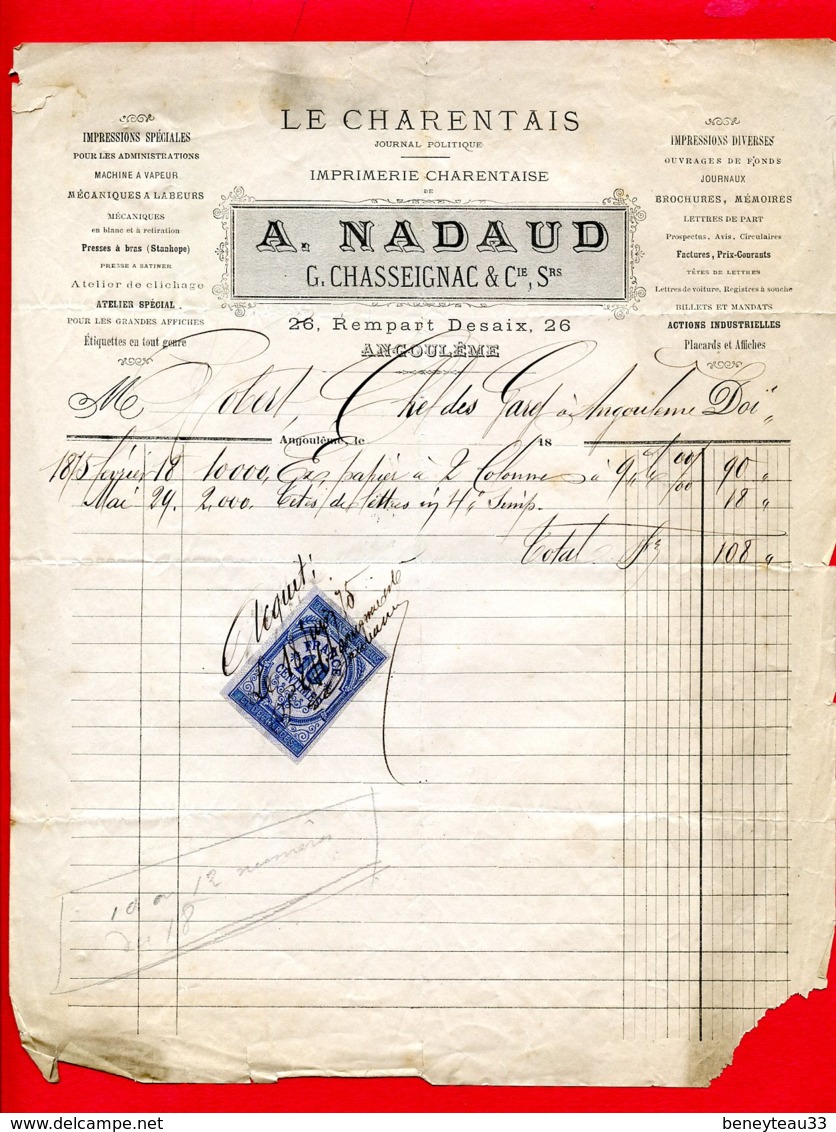 LE CHARENTAIS
JOURNAL POLITIQUE
IMPRIMERIE CHARENTAISE
DE
A. NADAUD
G. CHASSEIGNAC & CIE, SRS
26, Rempart Desaix, 26
ANGOULÊME
IMPRESSIONS SPÉCIALES
POUR LES ADMINISTRATIONS
MACHINE A VAPEUR
MÉCANIQUES A LABEURS
MÉCANIQUES
en blanc et à retiration
Presses à bras (Stanhope)
PRESSE A SATINER
Atelier de clichage
ATELIER SPÉCIAL
POUR LES GRANDES AFFICHES
Étiquettes en tout genre
IMPRESSIONS DIVERSES
OUVRAGES DE FONDS
JOURNAUX
BROCHURES, MÉMOIRES
LETTRES DE PART
Prospectus, Avis, Circulaires
Factures, Prix-Courants
TÊTES DE LETTRES
Lettres de voiture, Registres à souche
BILLETS ET MANDATS
ACTIONS INDUSTRIELLES
Placards et Affiches
M Robert, Chef des Gares à Angoulême Doit
Angoulême, le 18
1875 février 18 10000, Ex. papier à 2 Colonnes à 9 " 90 "
Mai 29. 2,000. Têtes de lettres in 4° Simp. 18 "
Total 108 "
Acquit:
FRANCE
10
10 ou 12 numéros
du 18
beneyteau33